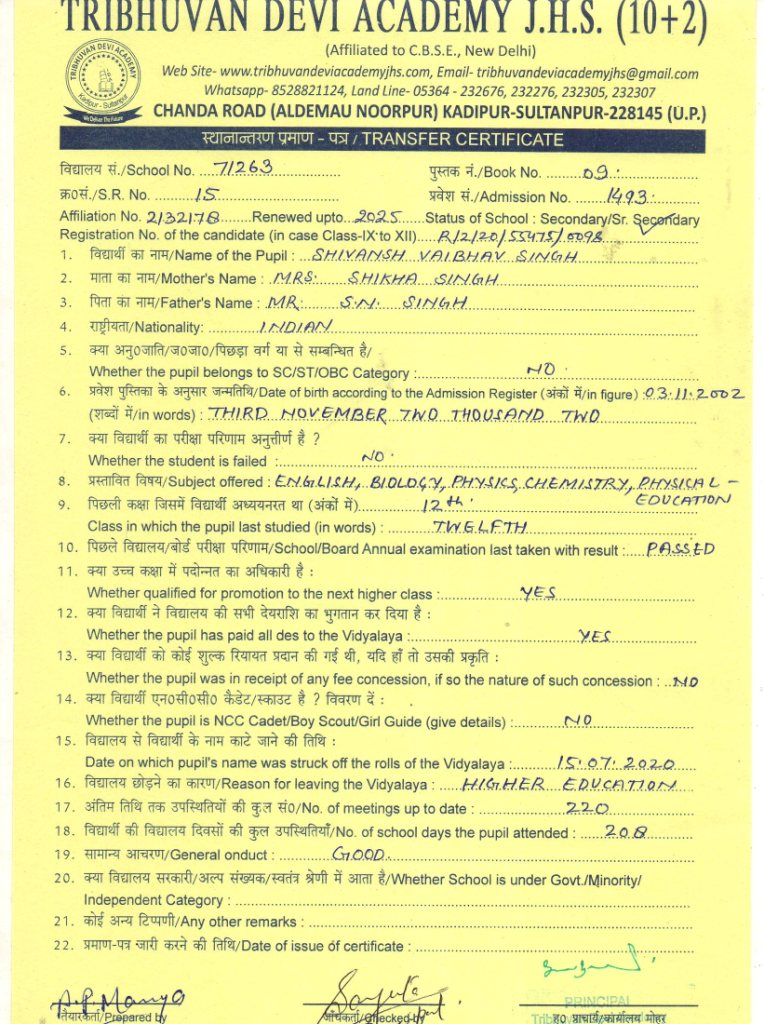 TRIBHUVAN DEVI ACADEMY J.H.S. (10+2)
(Affiliated to C.B.S.E., New Delhi)
TRIBHUVAN DEVI ACADEMY
Kadipur - Sultanpur
We Deliver The Future
Web Site- www.tribhuvandeviacademyjhs.com, Email- tribhuvandeviacademyjhs@gmail.com
Whatsapp- 8528821124, Land Line- 05364 - 232676, 232276, 232305, 232307
CHANDA ROAD (ALDEMAU NOORPUR) KADIPUR-SULTANPUR-228145 (U.P.)
स्थानान्तरण प्रमाण - पत्र / TRANSFER CERTIFICATE
विद्यालय सं./School No. 71263 पुस्तक नं./Book No. 09.
क्र0सं./S.R. No. 15 प्रवेश सं./Admission No. 1493.
Affiliation No. 2132178 Renewed upto 2025 Status of School : Secondary/Sr. Secondary
Registration No. of the candidate (in case Class-IX to XII) R/2/20/55475/0098
1. विद्यार्थी का नाम/Name of the Pupil : SHIVANSH VAIBHAV SINGH
2. माता का नाम/Mother's Name : MRS. SHIKHA SINGH
3. पिता का नाम/Father's Name : MR. S.N. SINGH
4. राष्ट्रीयता/Nationality: INDIAN
5. क्या अनु0जाति/ज0जा0/पिछड़ा वर्ग या से सम्बन्धित है/
Whether the pupil belongs to SC/ST/OBC Category : NO.
6. प्रवेश पुस्तिका के अनुसार जन्मतिथि/Date of birth according to the Admission Register (अंकों में/in figure) : 03.11.2002
(शब्दों में/in words) : THIRD NOVEMBER TWO THOUSAND TWO
7. क्या विद्यार्थी का परीक्षा परिणाम अनुत्तीर्ण है ?
Whether the student is failed : NO.
8. प्रस्तावित विषय/Subject offered : ENGLISH, BIOLOGY, PHYSICS, CHEMISTRY, PHYSICAL -
EDUCATION
9. पिछली कक्षा जिसमें विद्यार्थी अध्ययनरत था (अंकों में) 12th
Class in which the pupil last studied (in words) : TWELFTH
10. पिछले विद्यालय/बोर्ड परीक्षा परिणाम/School/Board Annual examination last taken with result : PASSED
11. क्या उच्च कक्षा में पदोन्नत का अधिकारी है :
Whether qualified for promotion to the next higher class : YES
12. क्या विद्यार्थी ने विद्यालय की सभी देयराशि का भुगतान कर दिया है :
Whether the pupil has paid all des to the Vidyalaya : YES
13. क्या विद्यार्थी को कोई शुल्क रियायत प्रदान की गई थी, यदि हाँ तो उसकी प्रकृति :
Whether the pupil was in receipt of any fee concession, if so the nature of such concession : NO
14. क्या विद्यार्थी एन0सी0सी0 कैडेट/स्काउट है ? विवरण दें :
Whether the pupil is NCC Cadet/Boy Scout/Girl Guide (give details) : NO
15. विद्यालय से विद्यार्थी के नाम काटे जाने की तिथि :
Date on which pupil's name was struck off the rolls of the Vidyalaya : 15.07.2020
16. विद्यालय छोड़ने का कारण/Reason for leaving the Vidyalaya : HIGHER EDUCATION
17. अंतिम तिथि तक उपस्थितियों की कुल सं0/No. of meetings up to date : 220
18. विद्यार्थी की विद्यालय दिवसों की कुल उपस्थितियाँ/No. of school days the pupil attended : 208
19. सामान्य आचरण/General onduct : GOOD
20. क्या विद्यालय सरकारी/अल्प संख्यक/स्वतंत्र श्रेणी में आता है/Whether School is under Govt./Minority/
Independent Category :
21. कोई अन्य टिप्पणी/Any other remarks :
22. प्रमाण-पत्र जारी करने की तिथि/Date of issue of certificate :
तैयारकर्ता/Prepared by जाँचकर्ता/Checked by ह0 प्राचार्य/कार्यालय मोहर
PRINCIPAL